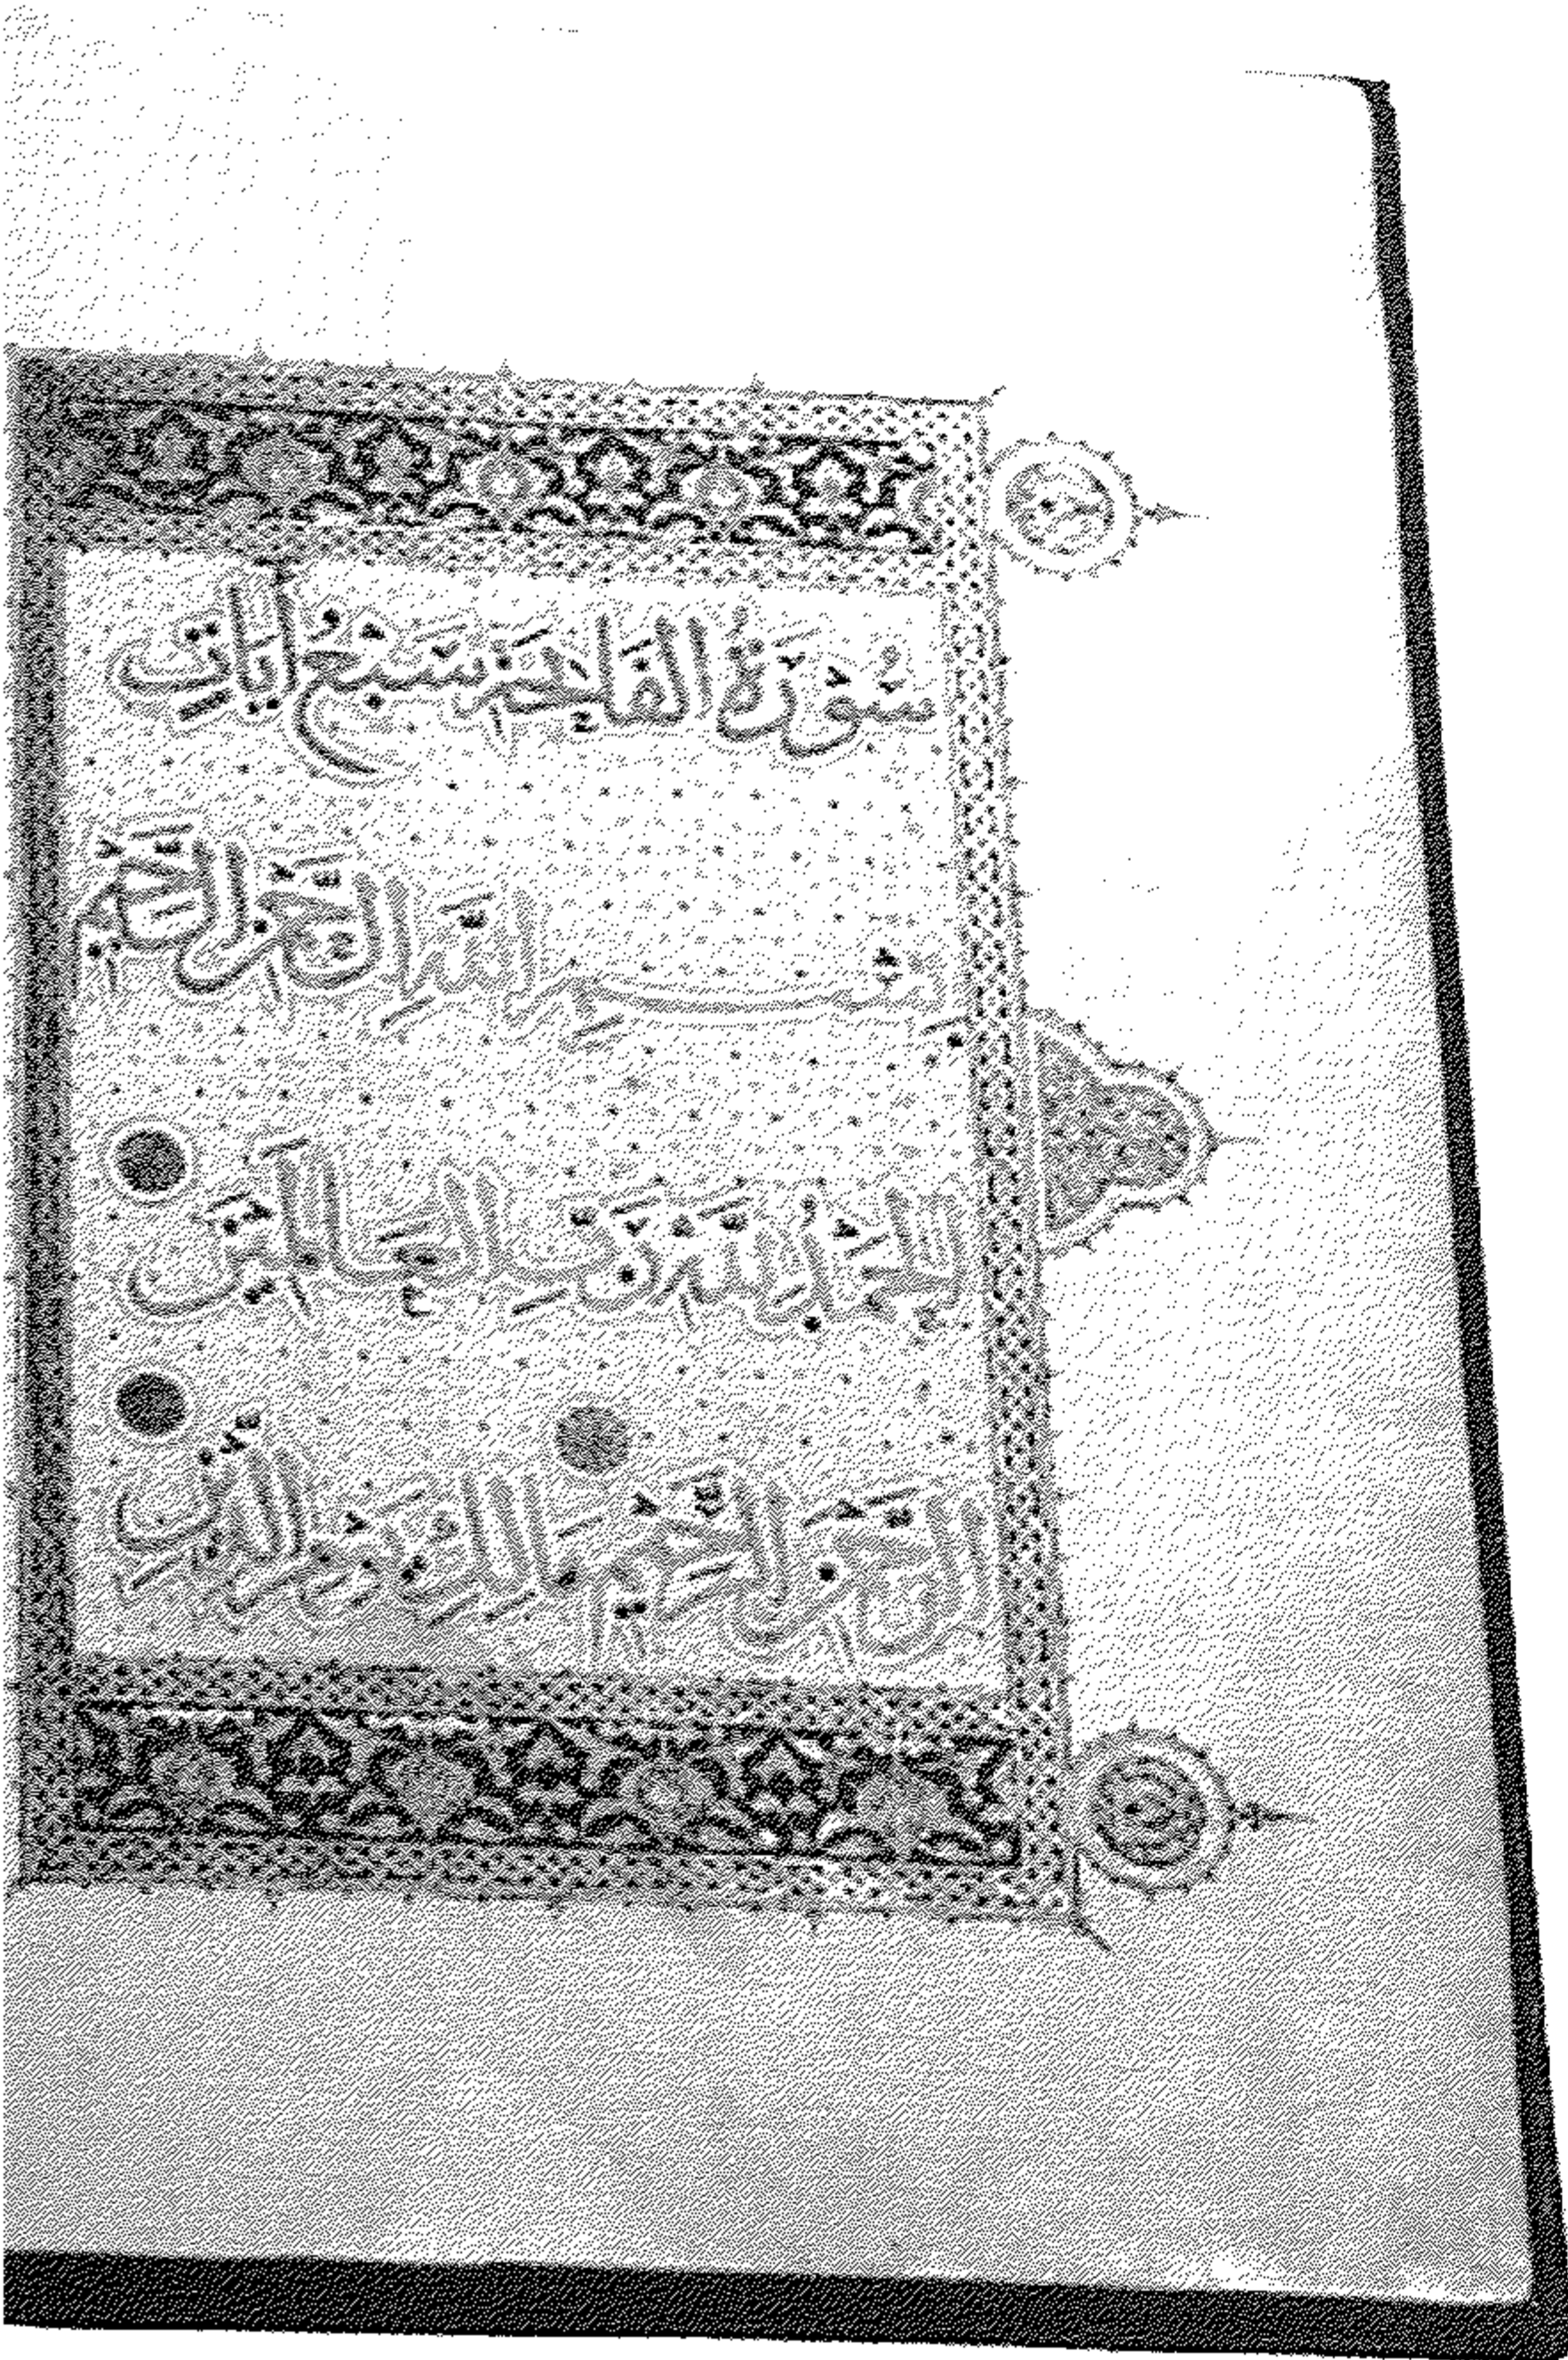 سُورَةُ الفَاتِحَةِ سَبْعُ اٰيَاتٍ
بِسْمِ اللَّهِ الرَّحْمَنِ الرَّحِيمِ
اَلْحَمْدُ لِلَّهِ رَبِّ العَالَمِينَ
الرَّحْمَنِ الرَّحِيمِ مَالِكِ يَوْمِ الدِّينِ